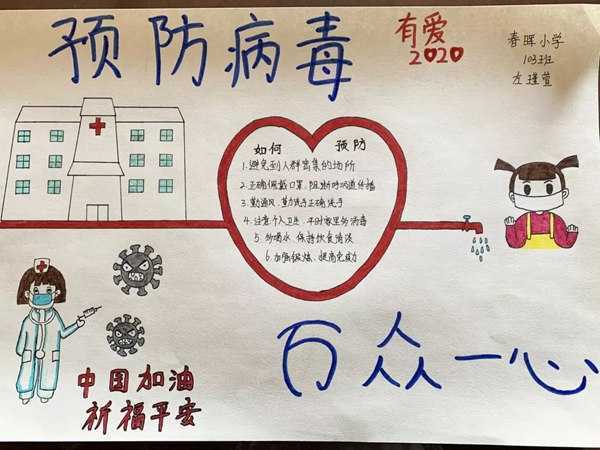 预防病毒
有爱
2020
春晖小学
103班
左瑾萱
如何 预防
1.避免到人群密集的场所
2.正确佩戴口罩,阻断呼吸道传播
3.勤通风,勤洗手正确洗手
4.注意个人卫生,平时家里多消毒
5.多喝水,保持饮食清淡
6.加强锻炼,提高免疫力
中国加油
祈福平安
万众一心